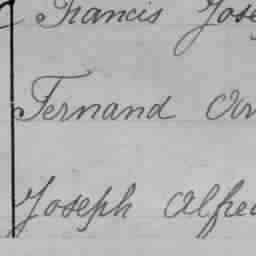 Francis Jose
Fernand
Joseph Alfred